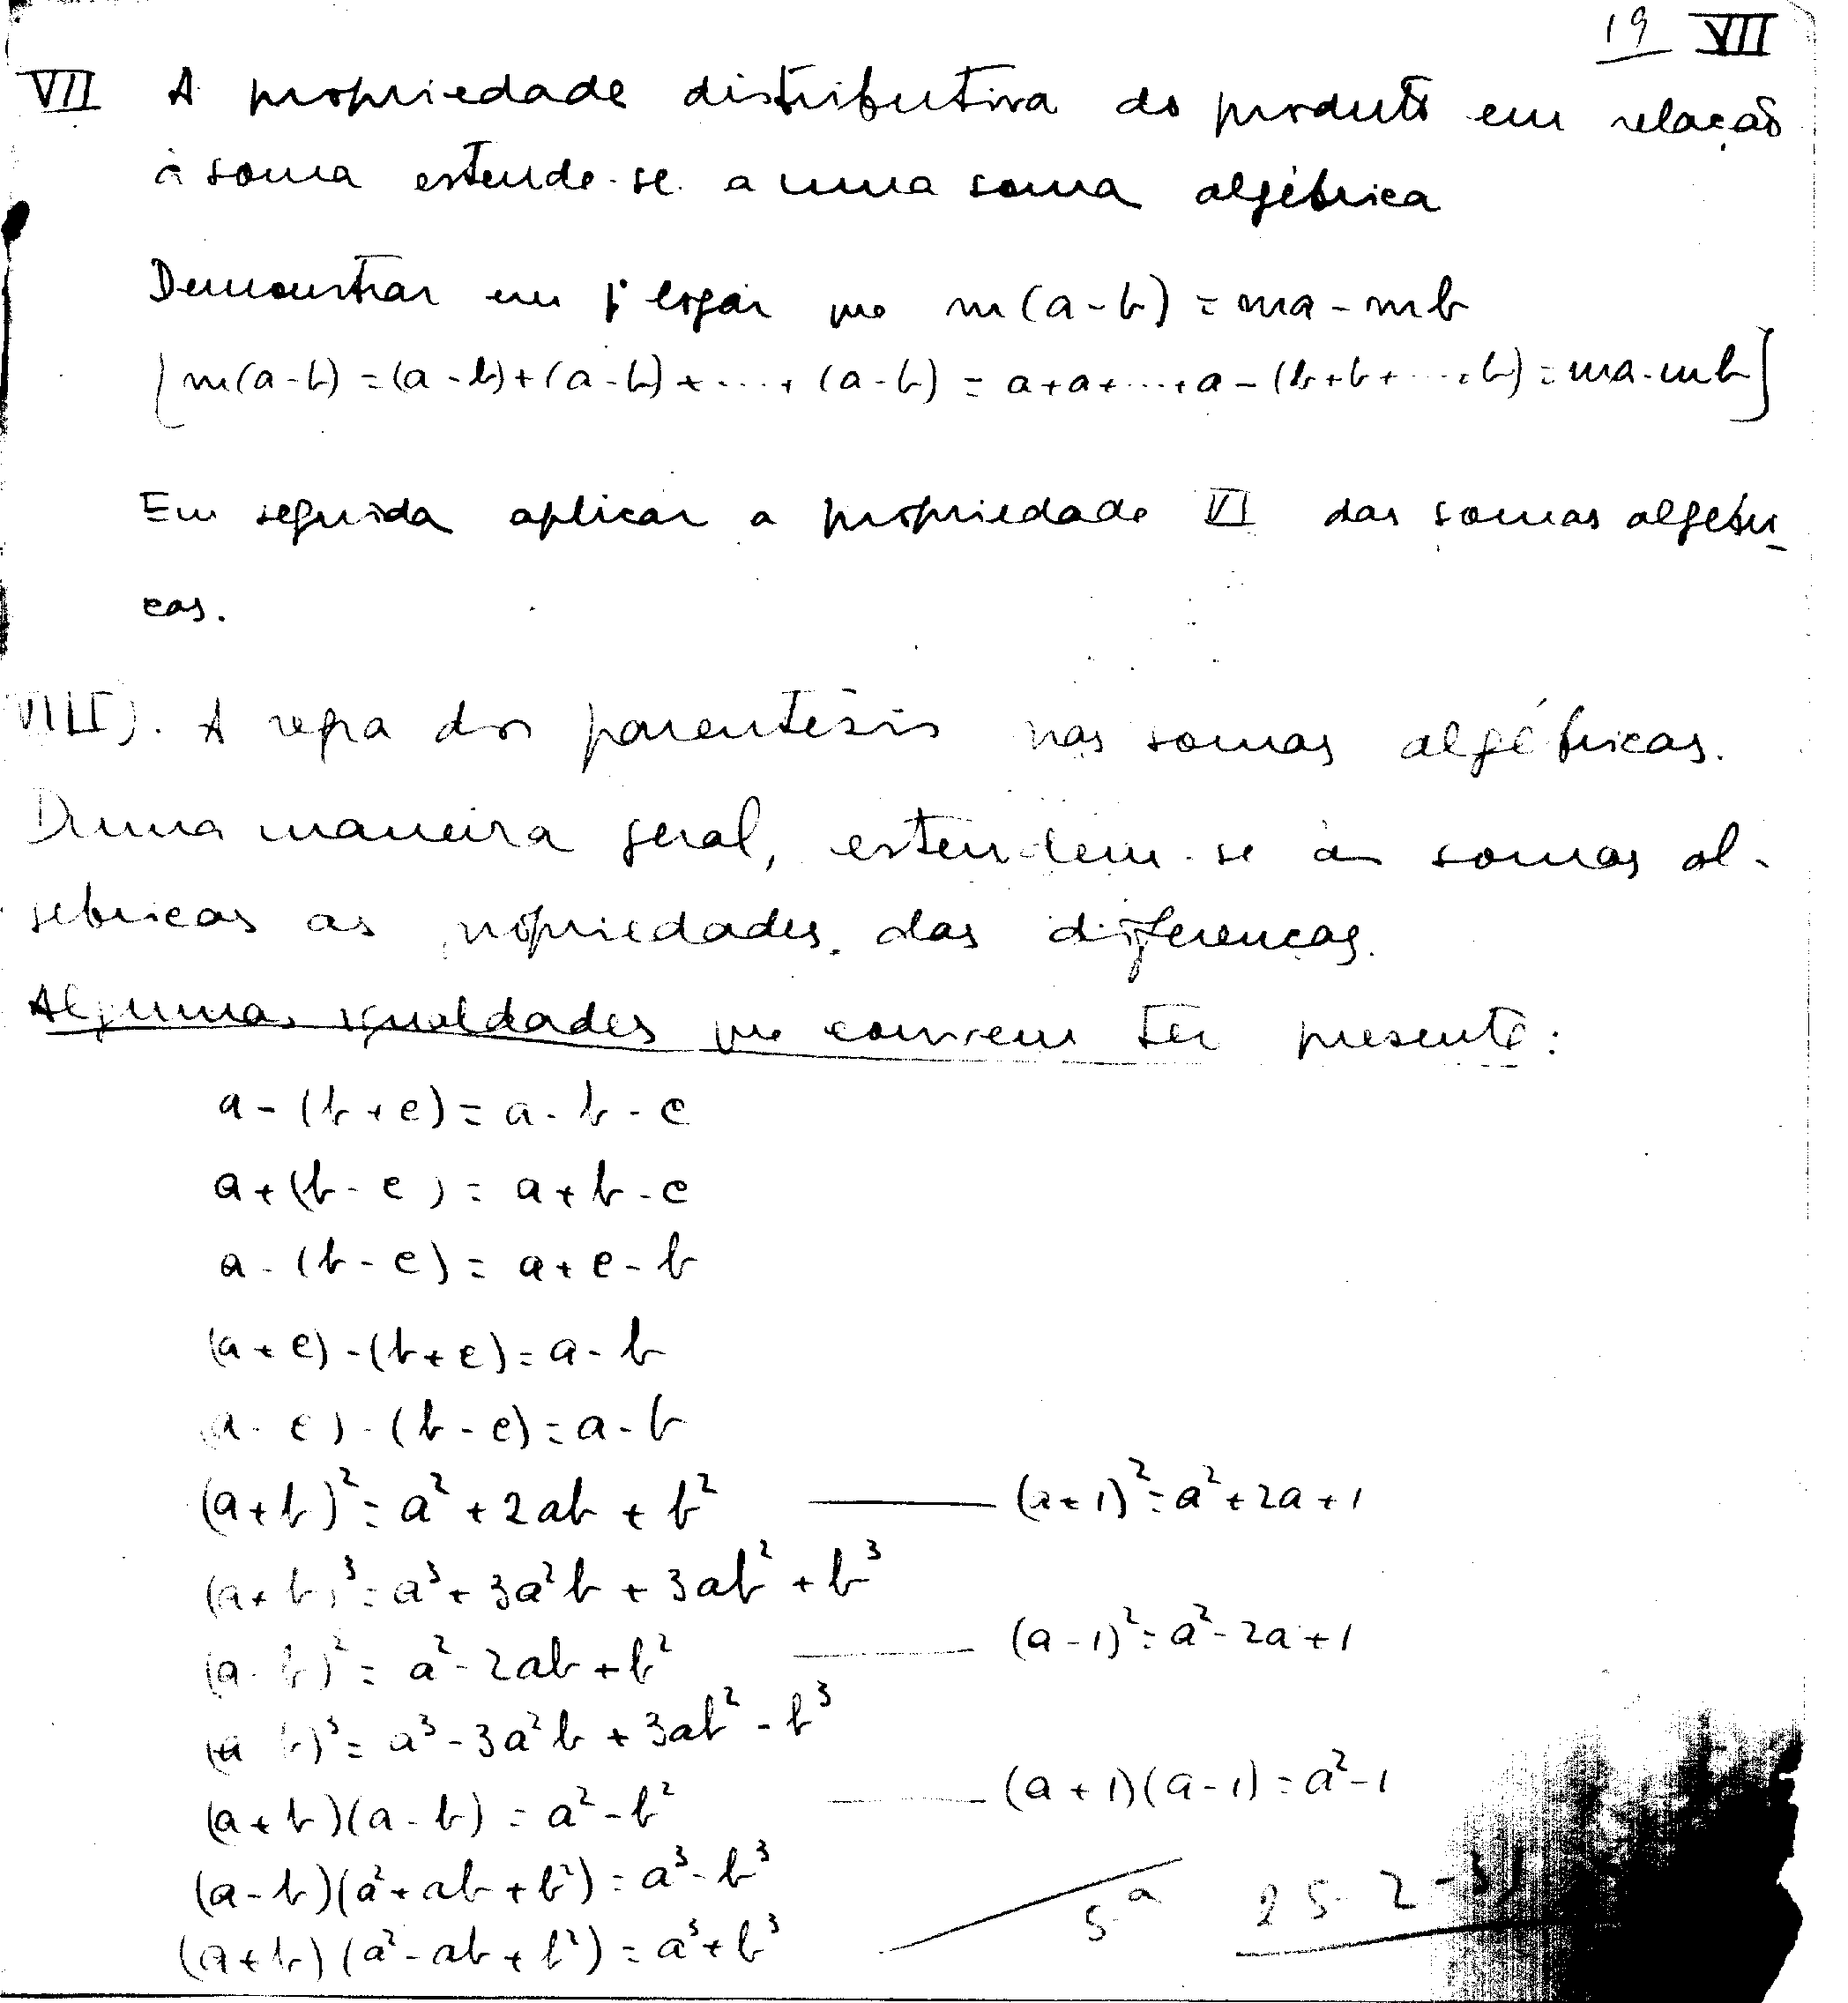 19 VII
VII A propriedade distributiva do produto em relação
à soma estende-se a uma soma algébrica
Demonstrar em 1º logar que m(a-b) = ma - mb
[m(a-b) = (a-b)+(a-b)+....+(a-b) = a+a+....+a - (b+b+....+b) = ma-mb]
Em seguida aplicar a propriedade VI das somas algébri-
cas.
VIII). A regra dos parentesis nas somas algébricas.
Duma maneira geral, estendem-se às somas al-
gebricas as propriedades das diferenças.
Algumas igualdades que convem ter presente:
a - (b+c) = a - b - c
a + (b - c) = a + b - c
a - (b - c) = a + c - b
(a + c) - (b + c) = a - b
(a - c) - (b - c) = a - b
(a+b)² = a² + 2ab + b² —— (a+1)² = a² + 2a + 1
(a+b)³ = a³ + 3a²b + 3ab² + b³
(a-b)² = a² - 2ab + b² —— (a-1)² = a² - 2a + 1
(a-b)³ = a³ - 3a²b + 3ab² - b³
(a+b)(a-b) = a² - b² —— (a+1)(a-1) = a² - 1
(a-b)(a²+ab+b²) = a³ - b³
(a+b)(a²-ab+b²) = a³ + b³
5ª 25-2-